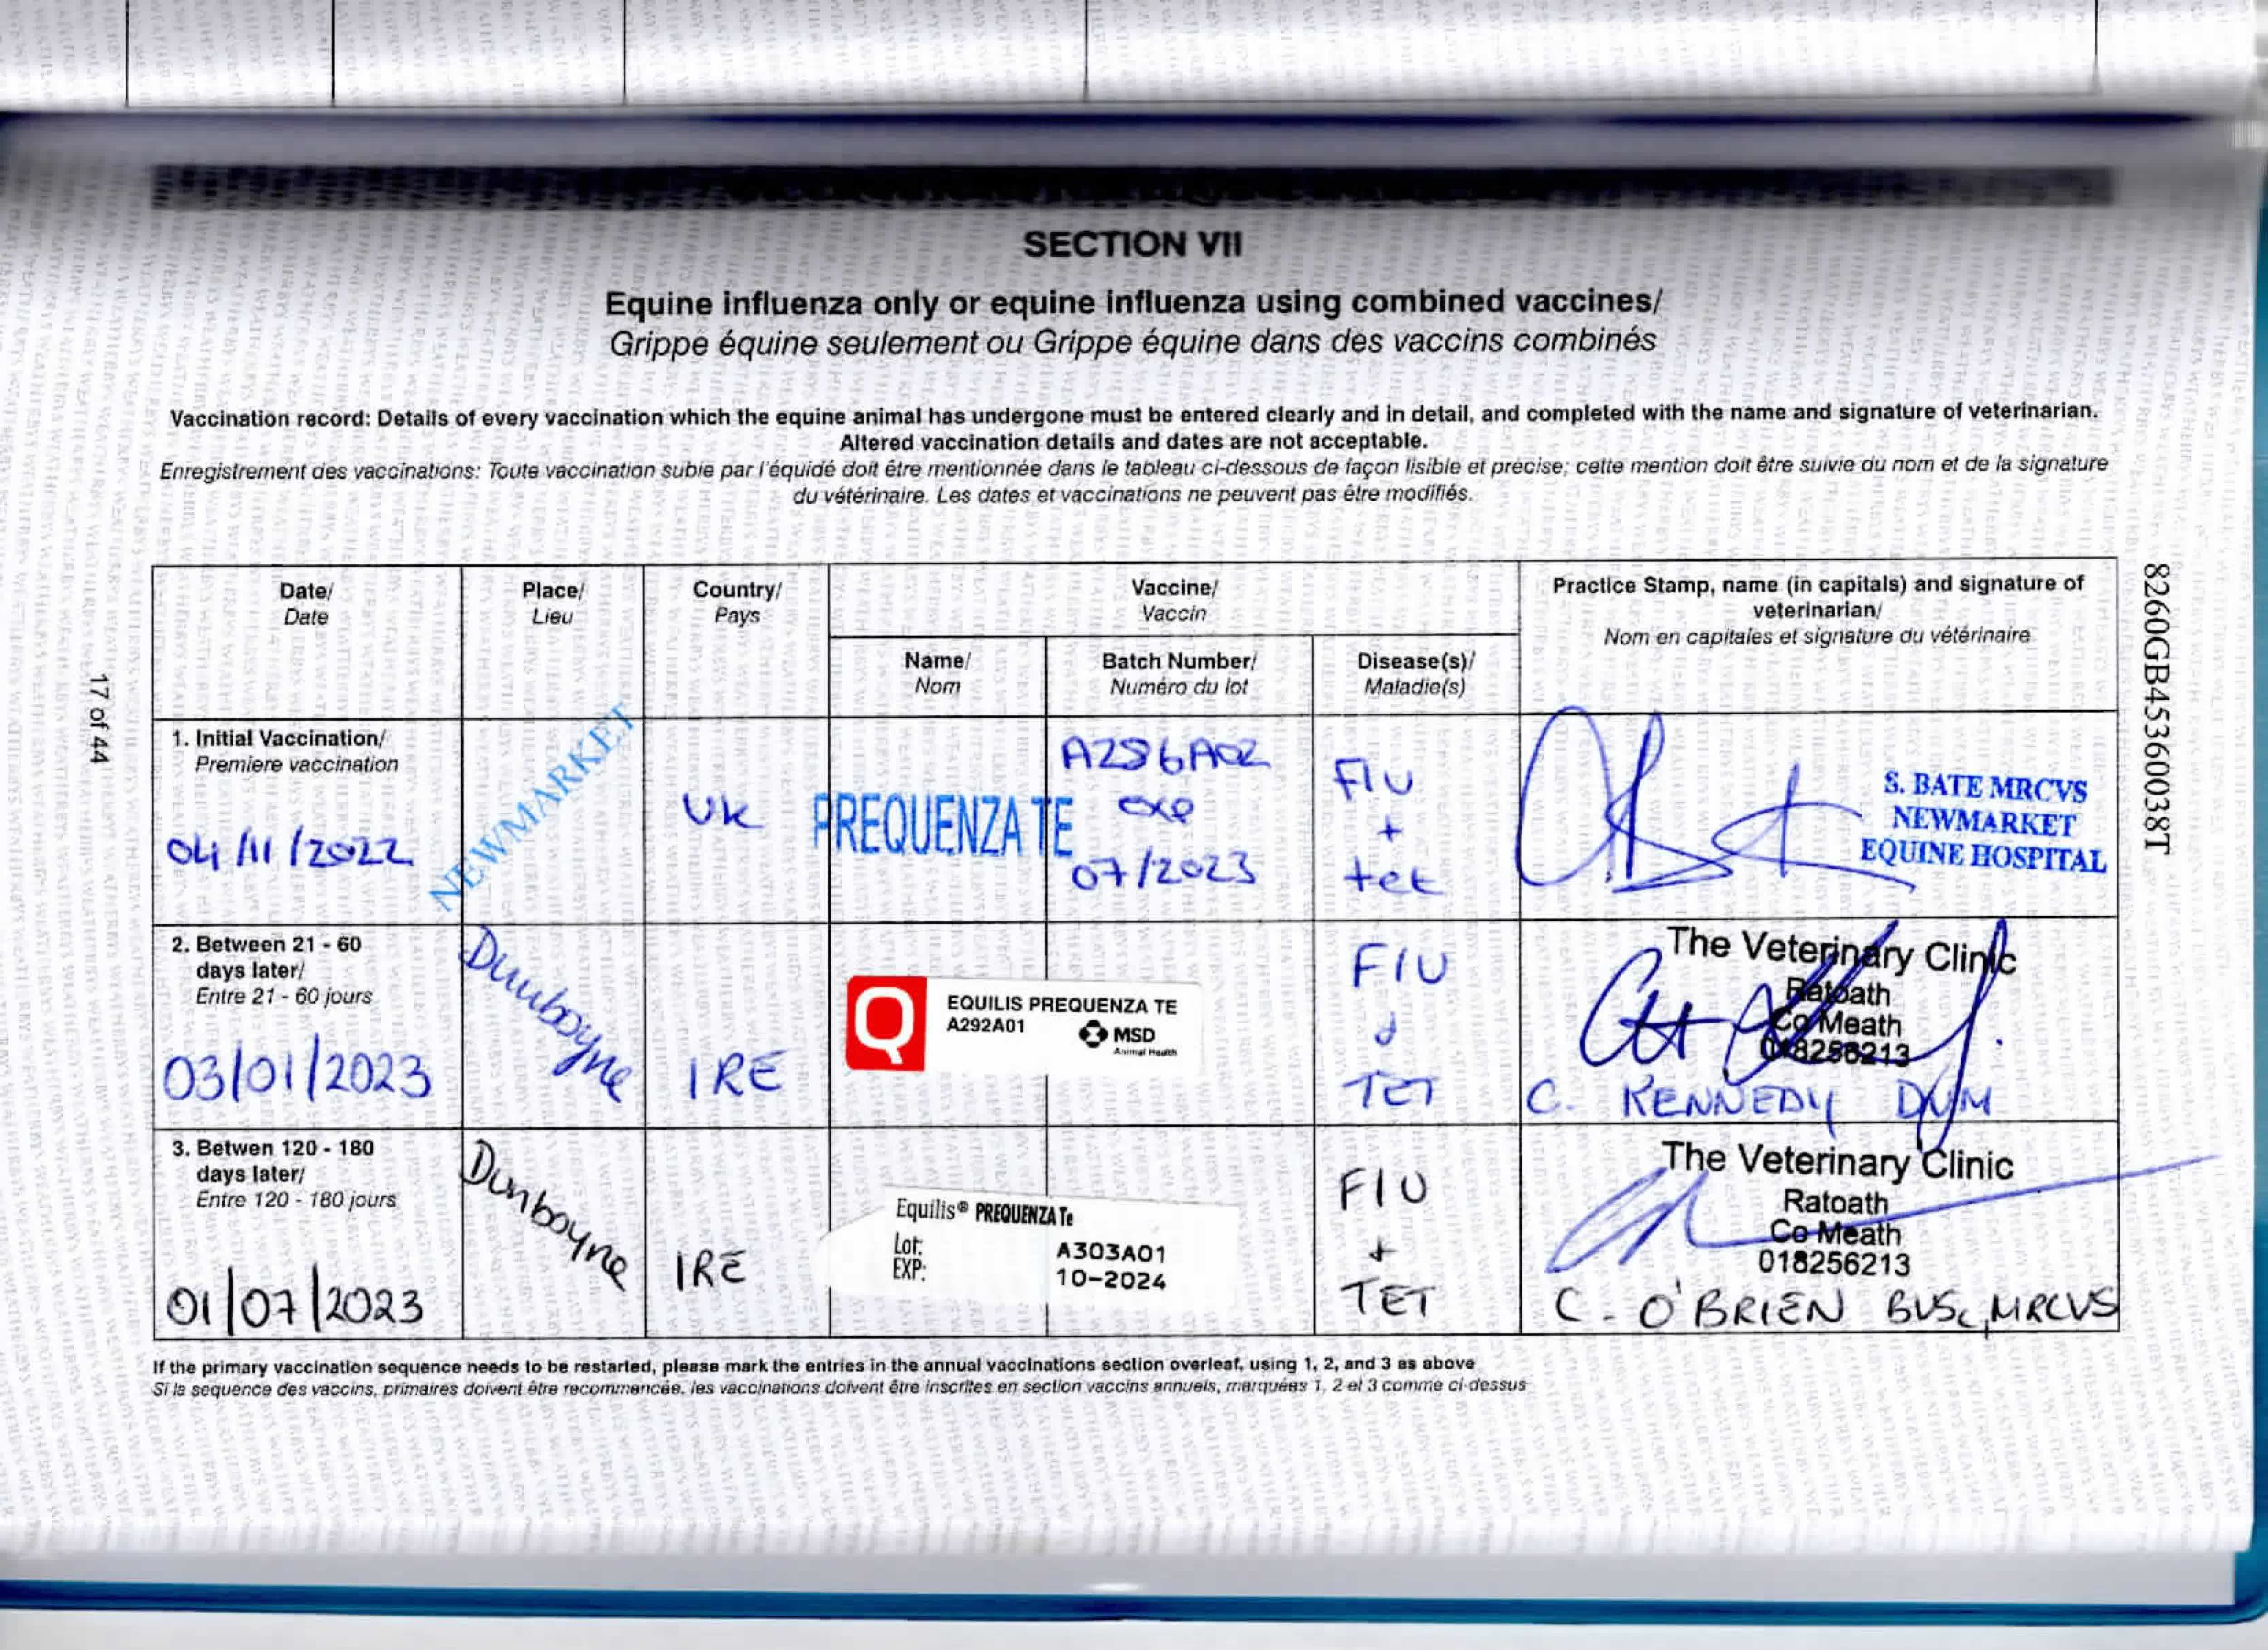 SECTION VII
Equine influenza only or equine influenza using combined vaccines/
Grippe équine seulement ou Grippe équine dans des vaccins combinés
Vaccination record: Details of every vaccination which the equine animal has undergone must be entered clearly and in detail, and completed with the name and signature of veterinarian.
Altered vaccination details and dates are not acceptable.
Enregistrement des vaccinations: Toute vaccination subie par l'équidé doit être mentionnée dans le tableau ci-dessous de façon lisible et précise; cette mention doit être suivie du nom et de la signature
du vétérinaire. Les dates et vaccinations ne peuvent pas être modifiés.
Date/
Date
Place/
Lieu
Country/
Pays
Vaccine/
Vaccin
Name/
Nom
Batch Number/
Numéro du lot
Disease(s)/
Maladie(s)
Practice Stamp, name (in capitals) and signature of
veterinarian/
Nom en capitales et signature du vétérinaire
1. Initial Vaccination/
Premiere vaccination
04/11/2022
NEWMARKET
UK
PREQUENZA TE
A286A02
exp
07/2023
Flu
+
tet
S. BATE MRCVS
NEWMARKET
EQUINE HOSPITAL
2. Between 21 - 60
days later/
Entre 21 - 60 jours
03/01/2023
Dunboyne
IRE
Q
EQUILIS PREQUENZA TE
A292A01
MSD
Animal Health
FlU
+
TET
The Veterinary Clinic
Ratoath
Co Meath
018256213
C. KENNEDY DVM
3. Betwen 120 - 180
days later/
Entre 120 - 180 jours
01/07/2023
Dunboyne
IRE
Equilis® PREQUENZA Te
Lot: A303A01
EXP: 10-2024
FlU
+
TET
The Veterinary Clinic
Ratoath
Co Meath
018256213
C. O'BRIEN BVSc, MRCVS
If the primary vaccination sequence needs to be restarted, please mark the entries in the annual vaccinations section overleaf, using 1, 2, and 3 as above
Si la sequence des vaccins, primaires doivent être recommencée, les vaccinations doivent être inscrites en section vaccins annuels, marquées 1, 2 et 3 comme ci-dessus
17 of 44
8260GB453600038T